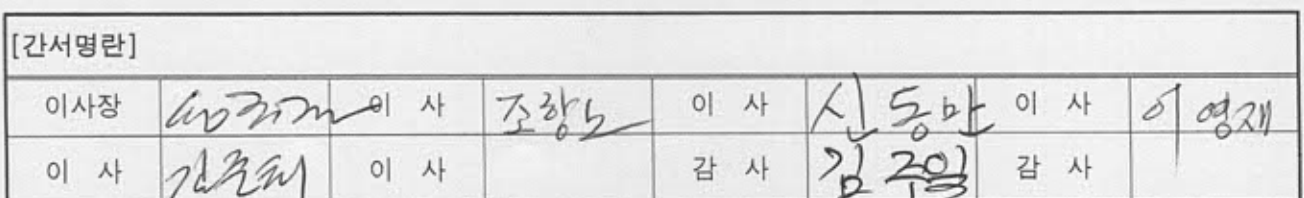 [간서명란]
이사장 이 사 조항노 이 사 신동만 이 사 이영재
이 사 김준태 이 사 감 사 김주일 감 사